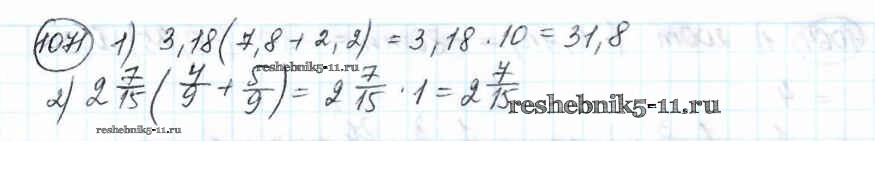 1071 1) 3,18(7,8+2,2)=3,18·10=31,8
reshebnik5-11.ru
2) 2 7/15(4/9+5/9)=2 7/15·1=2 7/15
reshebnik5-11.ru
reshebnik5-11.ru